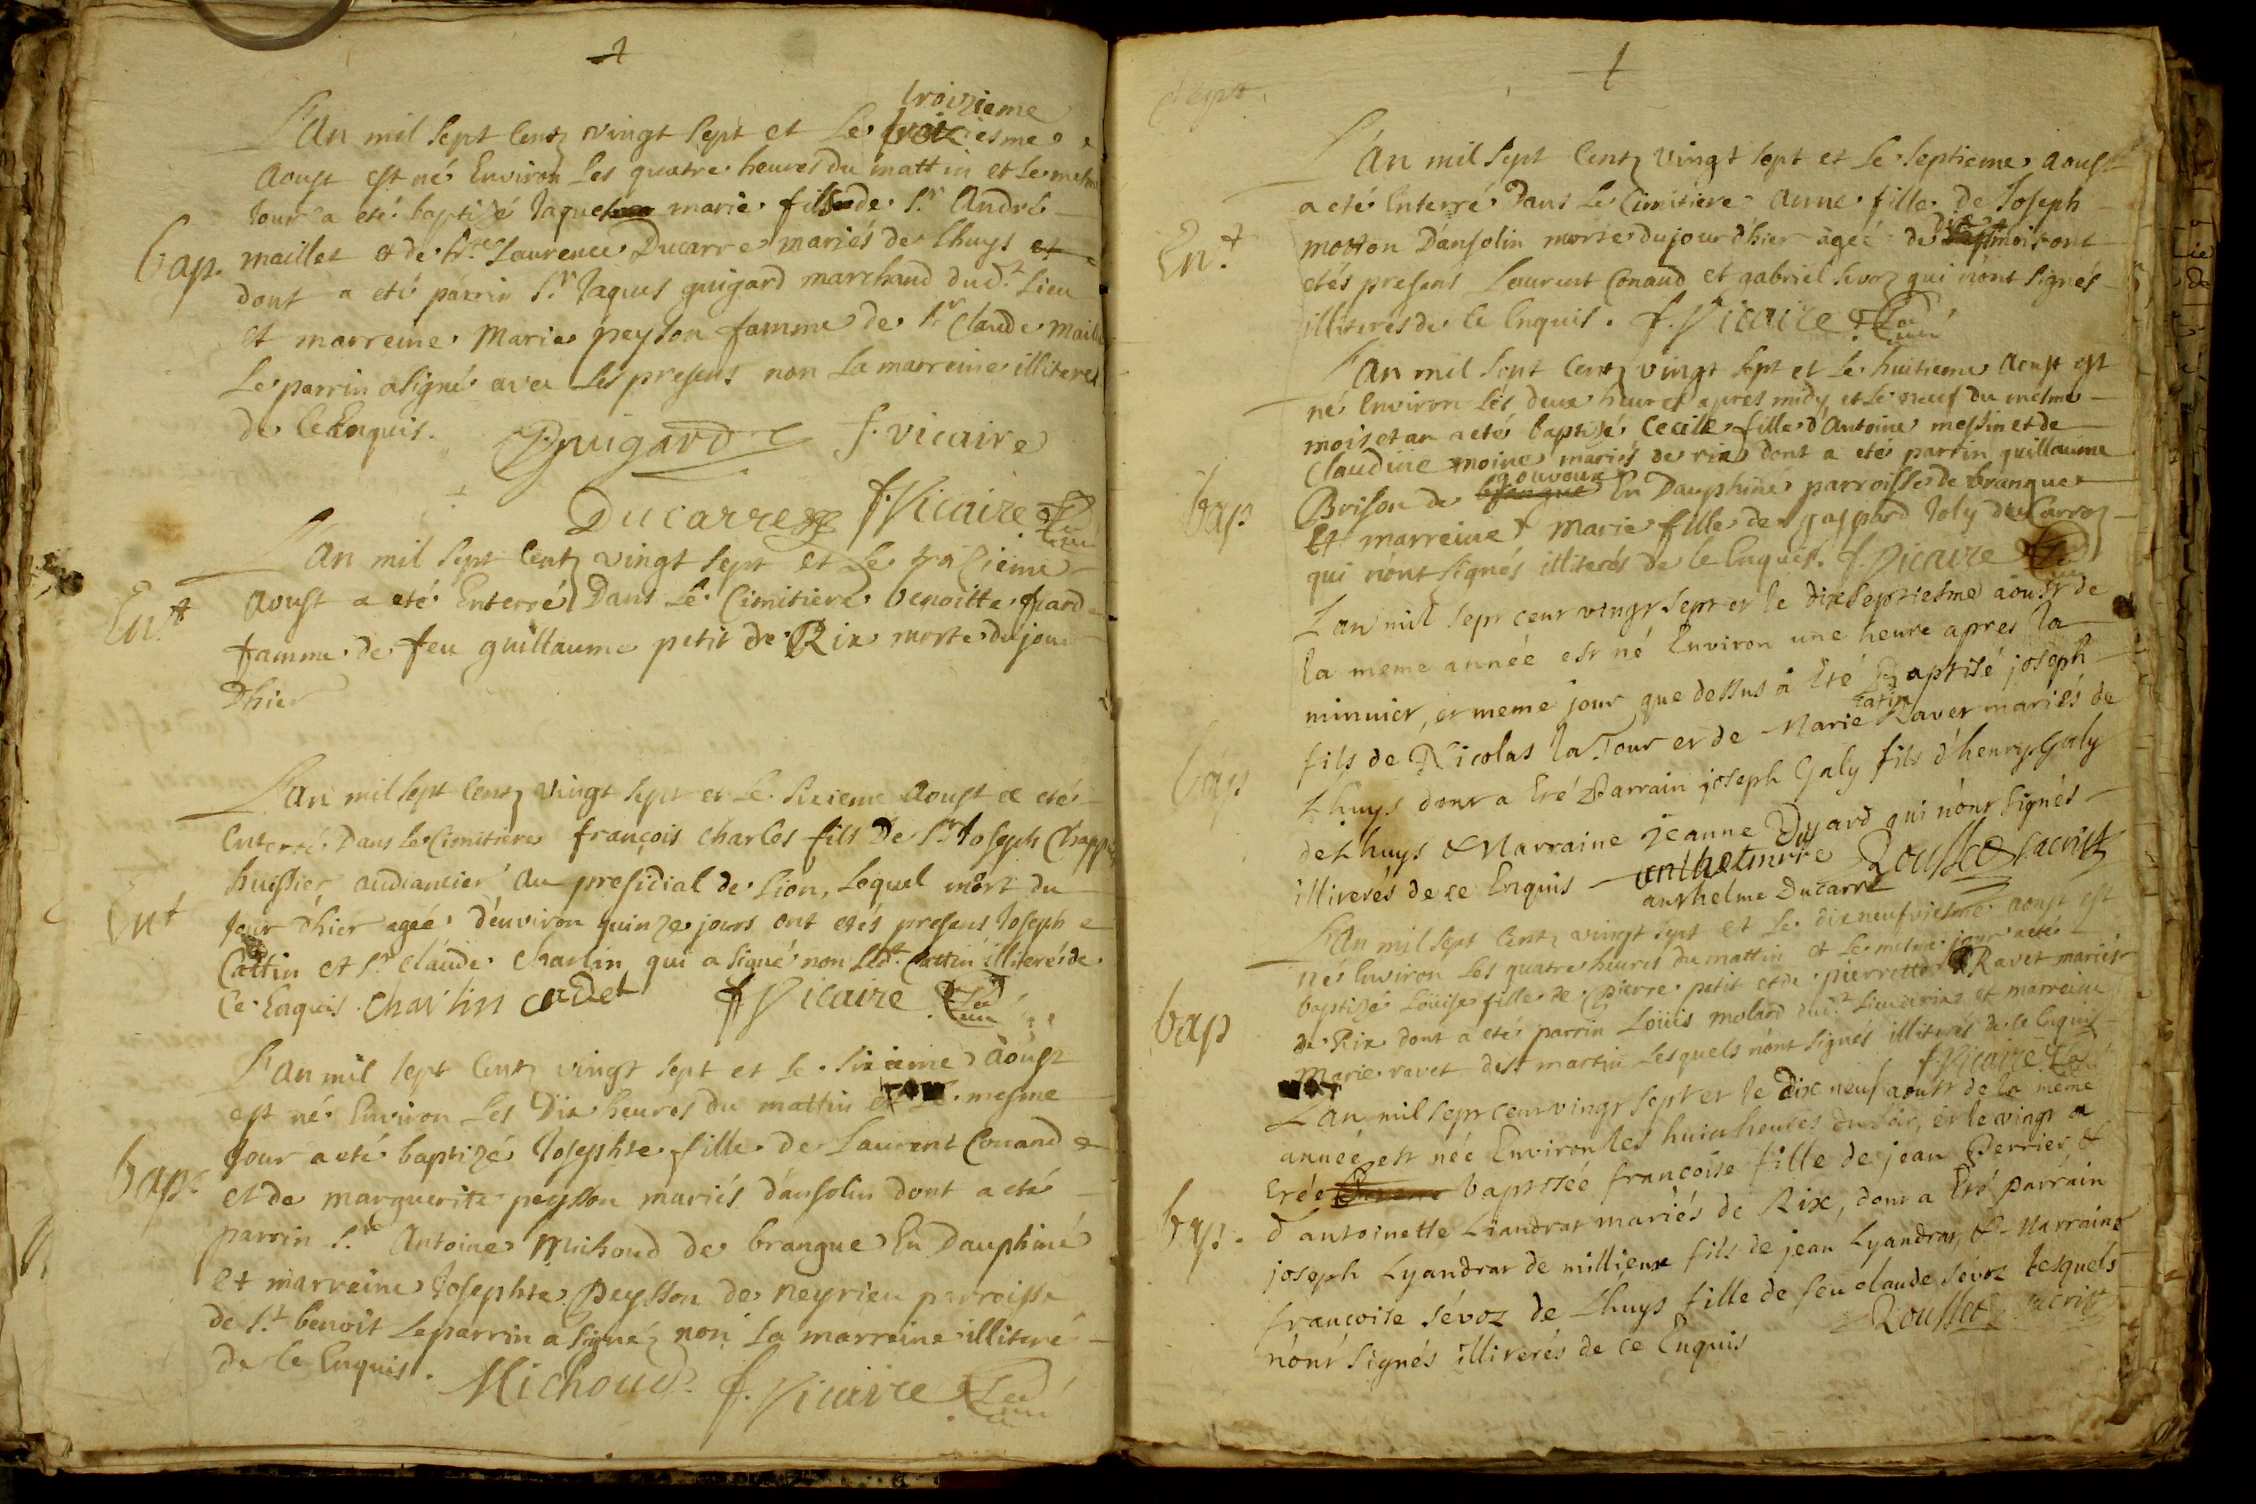 troizieme
L'An mil sept Centz vingt sept et Le troiziesme
Aoust est né Environ Les quatre heures du mattin et Le mesme
Jour a eté baptizé Jaque marie fils de Sr. André
bap. maillet et de Dlle Laurence Ducarre mariés de Lhuys et
dont a eté parrin Sr. Jaques guigard marchand dud.t Lieu
et marreine Marie peyson famme de Sr. Claude Maill
Le parrin a signé avec Les presens non La marreine illiteré
de Ce Enquis. Guigard f. vicaire
Ducarre f. Vicaire
L'An mil sept Centz vingt sept et Le
En.t Aoust a eté Enterré Dans Le Cimitiere benoitte
famme de feu guillaume petit de Rix morte du jour
Dhier
L'An mil sept Centz vingt sept et Le Sixieme Aoust a eté
Enterré Dans Le Cimitiere françois Charles fils De Sr. Joseph Chapp
huissier audiancier Au presidial de Lion, Lequel mort du
Ent Jour d'hier ageé d'environ quinze jours ont etés presens Joseph
Cattin et Sr. Claude Charlin qui a signé non Led.t Cattin illiteré de
Ce Enquis. Charlin Cadet f. Vicaire
L'An mil sept Centz vingt sept et Le Sixieme Aoust
est né Environ Les Dix heures du mattin et Le mesme
Jour a eté baptizé Josephte fille de Laurent Conand
bap. et de marguerite peysson mariés d'ansolin dont a eté
parrin Sr. Antoine Michoud de brangue En Dauphiné
et marreine Josephte Peysson de Neyrieu parroisse
de St. benoit Le parrin a signé non La marreine illiteré
de Ce Enquis. Michoud. f. Vicaire
L'An mil sept Centz vingt sept et Le septieme Aoust
a eté Enterré Dans Le Cimitiere Anne fille de Joseph
En.t motton D'ansolin morte dujour d'hier ageé de mois ont
etés presens Laurent Conaud et gabriel Sevoz qui n'ont signés
illiterés de Ce Enquis. f. Vicaire
L'An mil sept Centz vingt sept et Le huitieme Aoust est
né Environ Les deux heures apres midy et Le neuf du mesme
mois et an a eté baptizé Cecille fille d'Antoine messin et de
Claudine moine mariés de rix dont a eté parrin guillaume
bap Brison de brangue gouvoux En Dauphiné parroisse de brangue
Et marreine Marie fille de gaspard Joly du Carroz
qui n'ont signés illiterés de Ce Enquis. f. Vicaire
L'an mil sept cent vingt sept et le dix septiesme aoust de
la meme année est né Environ une heure apres la
minuict, et meme jour que dessus a Eté Baptisé joseph
fils de Nicolas la Tour et de Marie Ravet mariés de
bap Lhuys dont a Eté Parrain joseph Galy fils d'henry Galy
de Lhuys & Marraine jeanne Dusard qui n'ont signés
illiterés de ce Enquis Rousset sacrist
anthelme Ducarre
L'An mil sept Centz vingt sept et Le dixneufviesme Aoust est
nés Environ Les quatre heures du mattin et Le mesme jour a eté
baptizé Loüise fille de Pierre petit et de pierrette Ravet mariés
bap de Rix dont a eté parrin Loüis molard dud.t Lieu et marreine
Marie ravet de St martin Lesquels n'ont signés illiterés de Ce Enquis
f. Vicaire
L'an mil sept cent vingt sept et le dix neuf aoust de la meme
année est née Environ les huict heures du soir, et le vingt a
Etée baptiseé francoise fille de jean Perrier &
bap. d'antoinette Liandrat mariés de Rix, dont a Eté parrain
joseph Lyandrat de millieux fils de jean Lyandrat, & Marraine
francoise sévoz de Lhuys fille de feu claude sévoz Lesquels
n'ont signés illiterés de ce Enquis Rousset sacrist